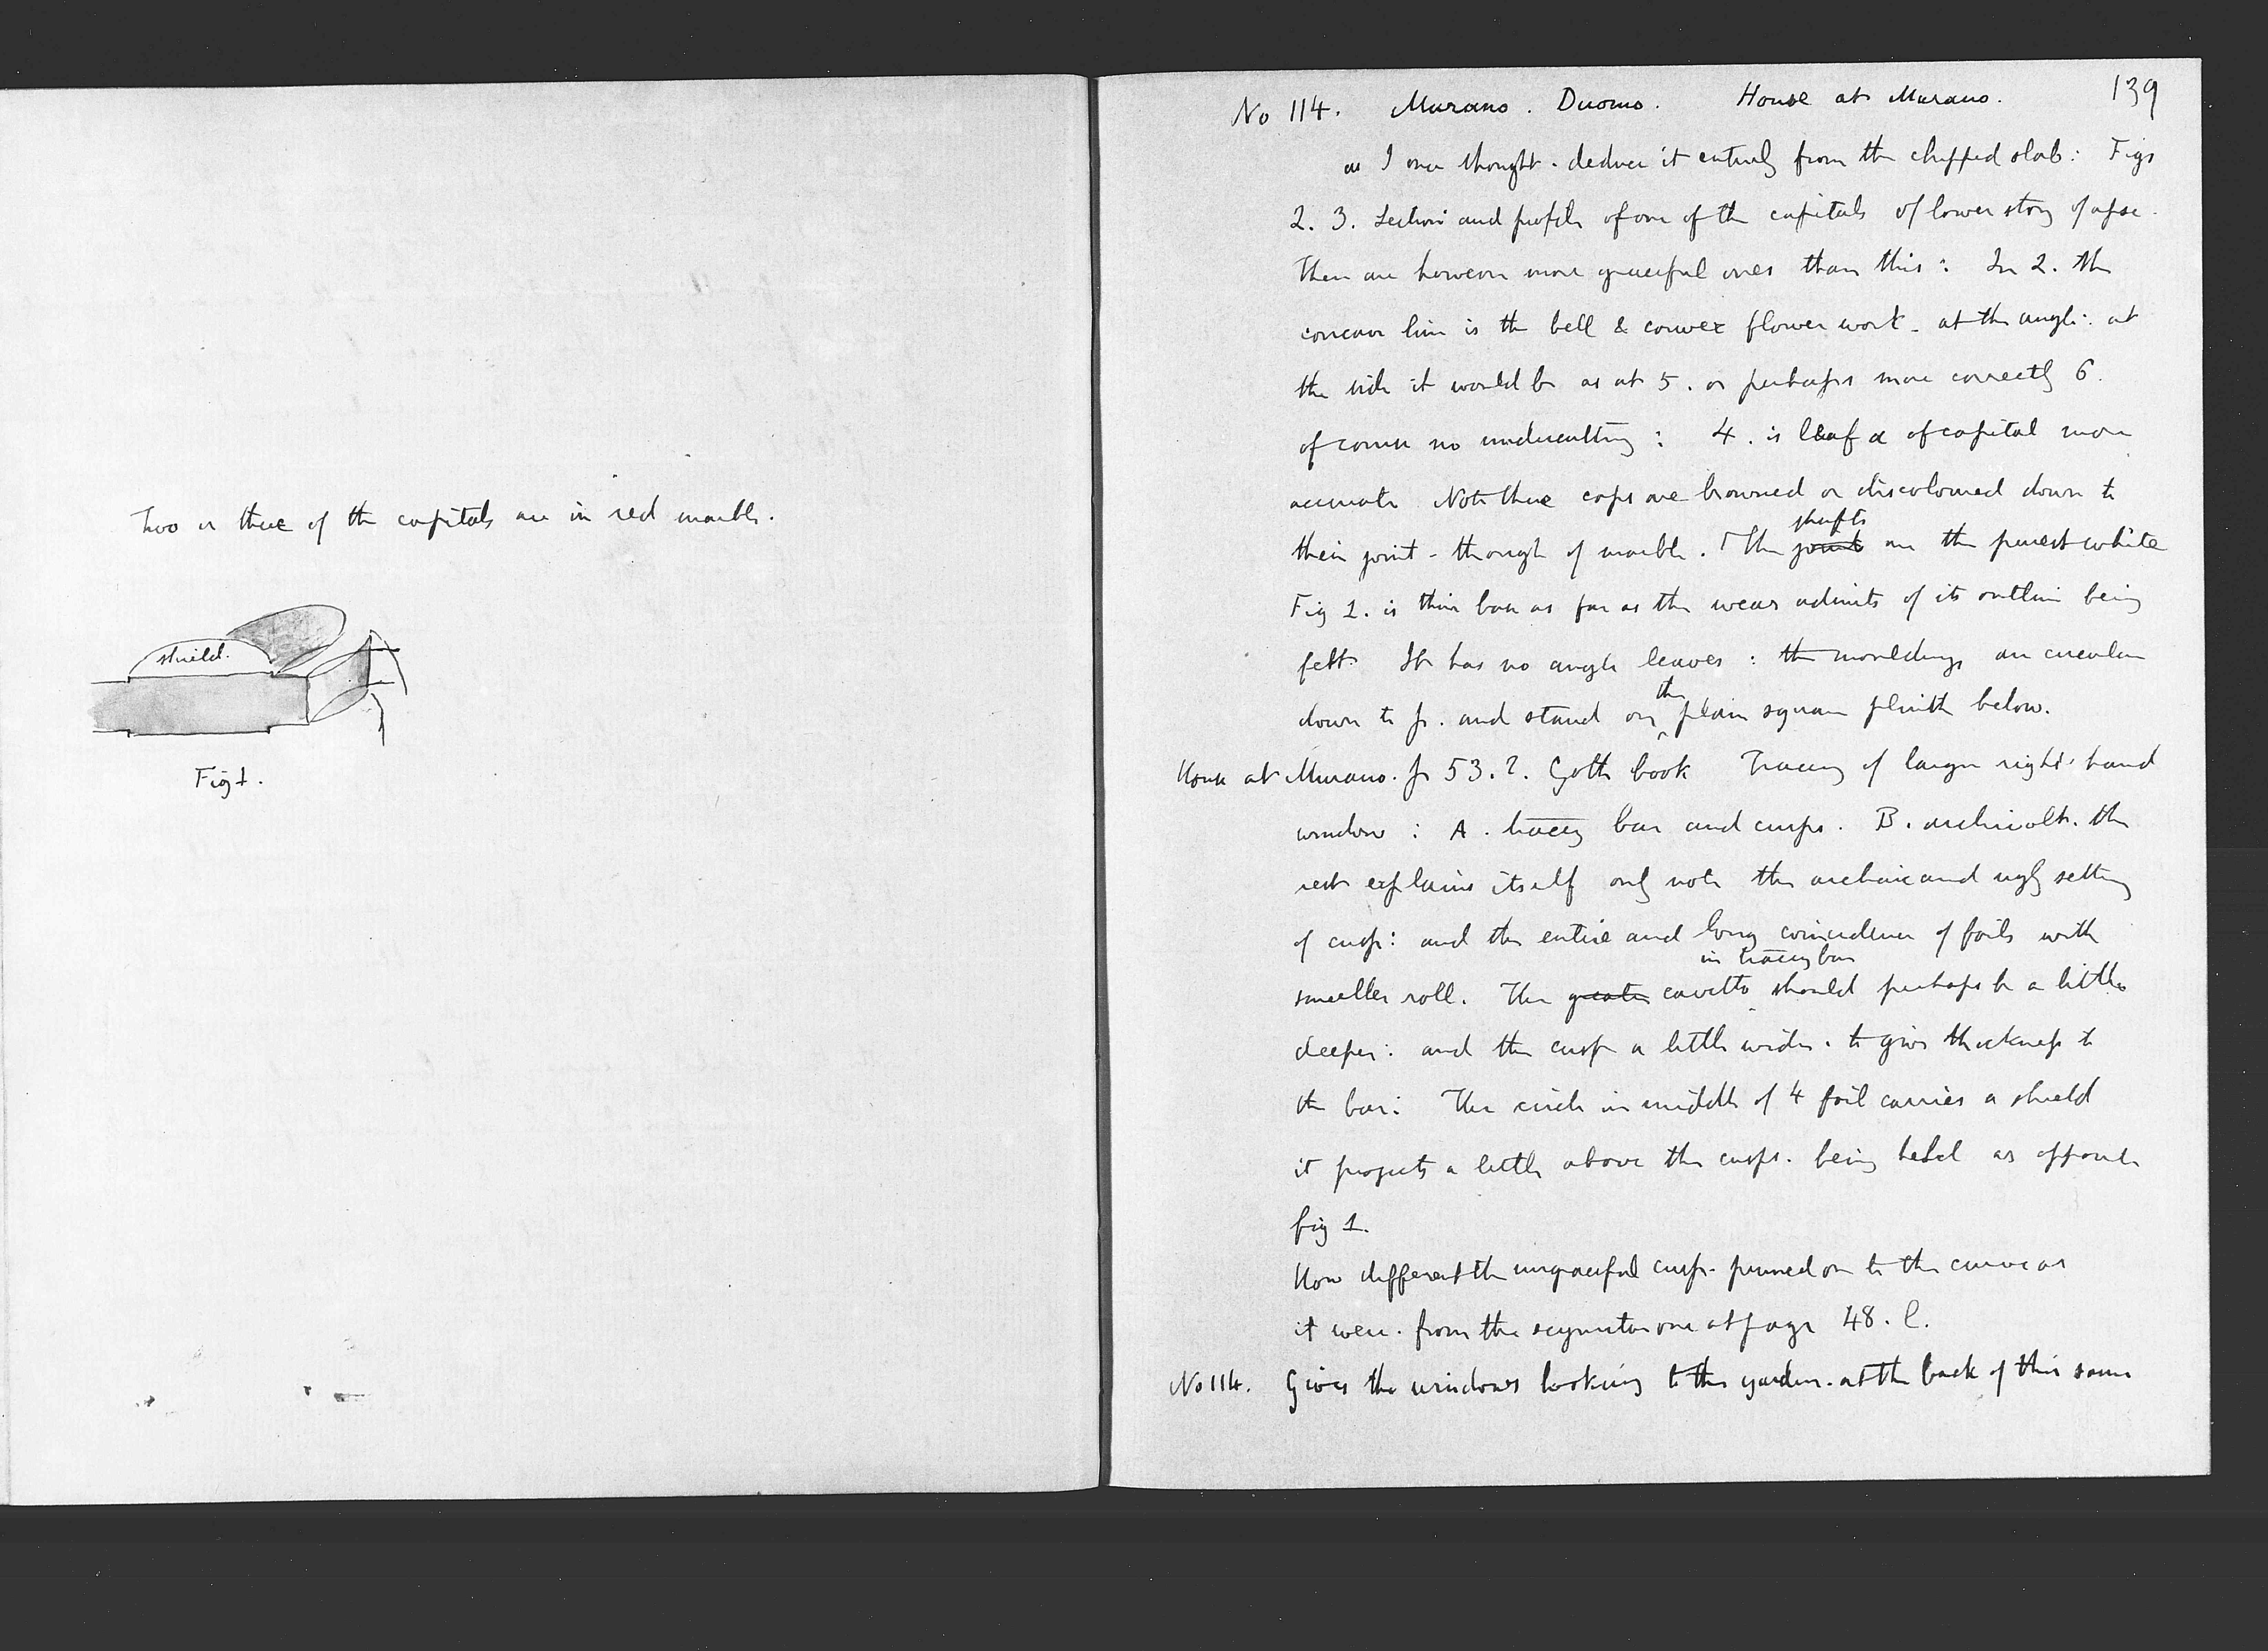 Two or three of the capitals are in red marble.
shield.
Fig 1.
No 114. Murano. Duomo. House at Murano. 139
as I once thought. deduce it entirely from the chipped slab: Figs
2. 3. Section and profile of one of the capitals of lower story of apse.
There are however more graceful ones than this: In 2. the
concave line is the bell & convex flower work - at the angle: at
the side it would be as at 5. or perhaps more correctly 6.
of course no undercutting: 4. is leaf α of capital more
accurate Note these caps are browned or discoloured down to
their joint - though of marble. The joint shafts are the purest white
Fig 1. is their base as far as the wear admits of its outline being
felt. It has no angle leaves: the mouldings are circular
down to p. and stand on the plain square plinth below.
House at Murano. p 53.2. Goth book Tracery of larger right hand
window: A. tracery bar and cusps. B. archivolt. the
rest explains itself only note the archaic and ugly setting
of cusp: and the entire and long coincidence of foils with
smaller roll. The greater cavetto in tracery bar should perhaps be a little
deeper: and the cusp a little wider. to give thickness to
the bar: The circle in middle of 4 foil carries a shield
it projects a little above the cusps. being held as opposite
fig 1.
How different the ungraceful cusp. pinned on to the curve as
it were. from the at page 48. l.
No 114. Gives the windows looking to the garden. at the back of this same